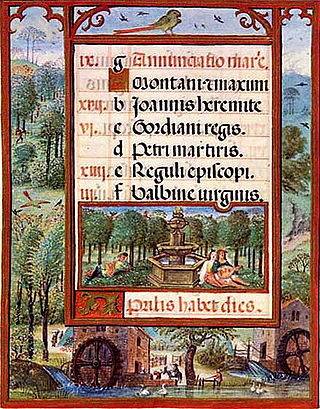 ix. g Annunciatio marie.
A Montani et maximi
xvii. b Joannis heremite
vi. c Gordiani regis.
d Petri martiris.
xiiii. e Reguli episcopi.
iii. f Balbine virginis.
Aprilis habet dies.